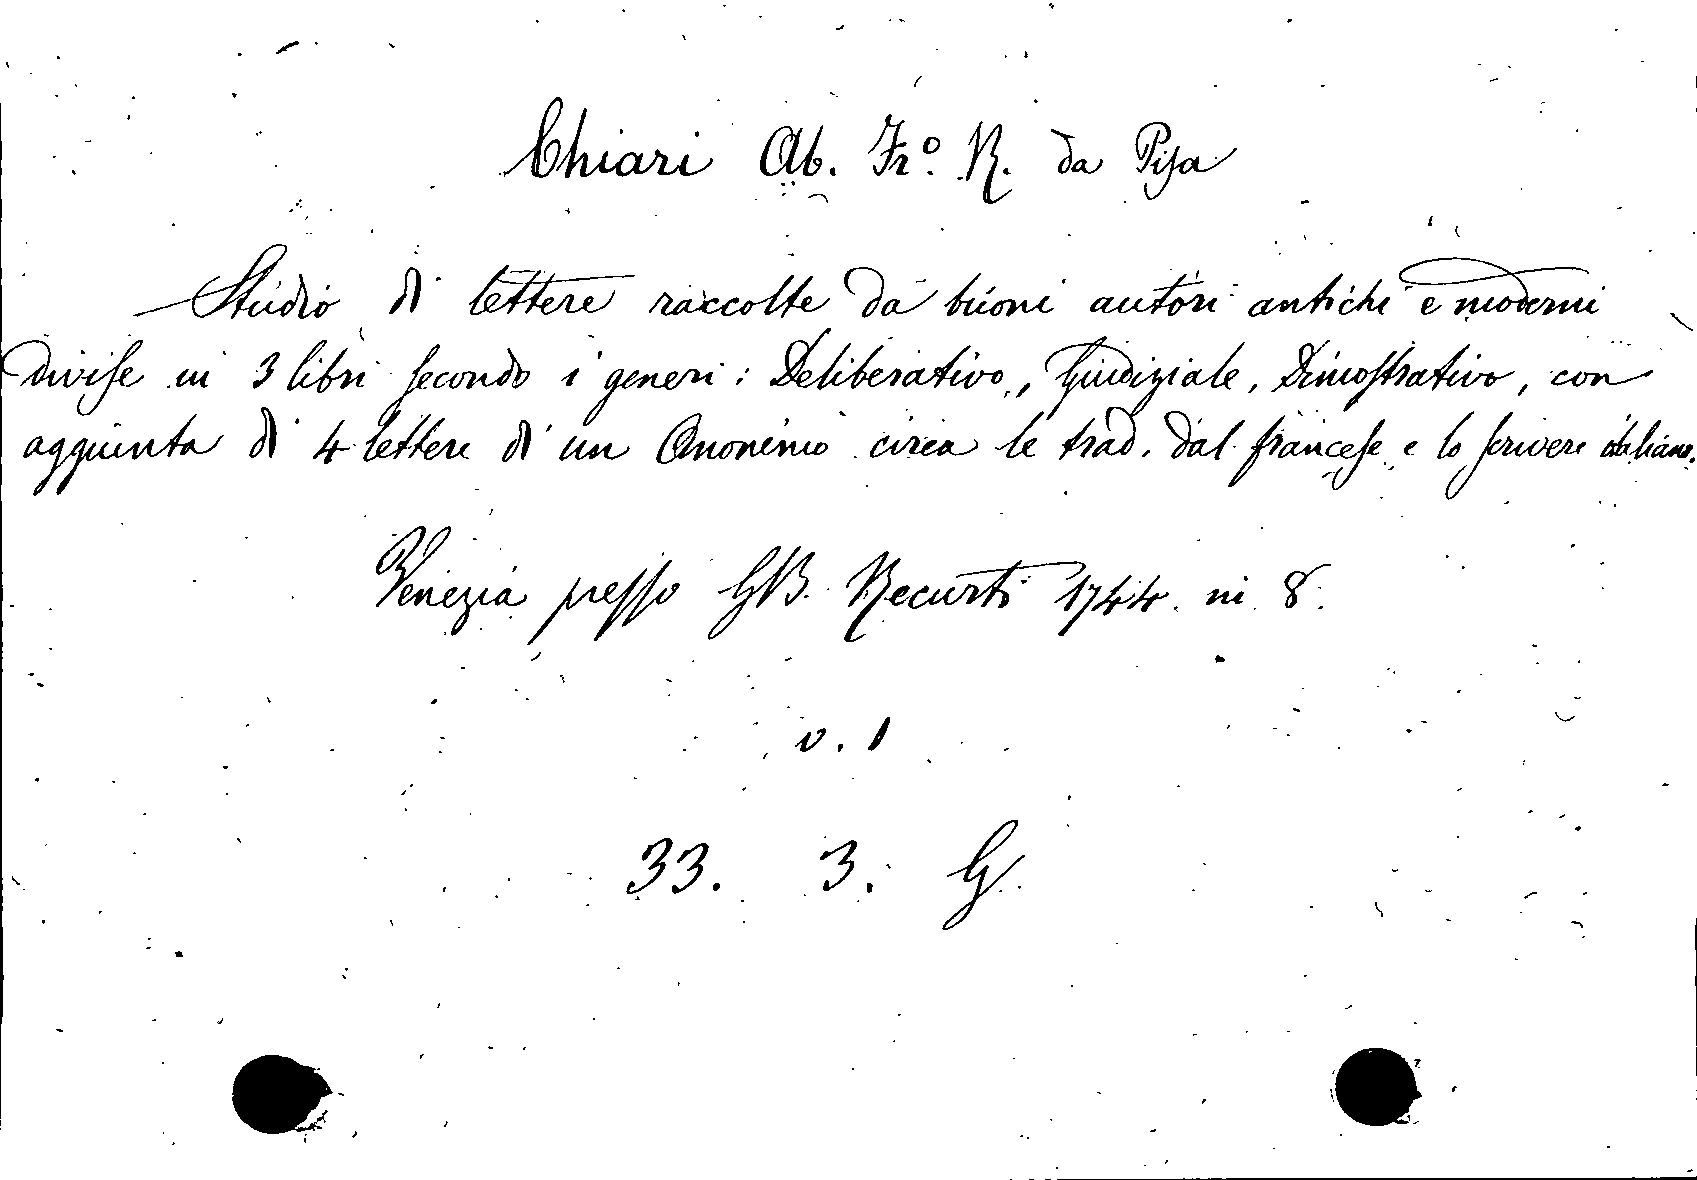 Chiari Ab. Frº. R. da Pisa
Studio di lettere raccolte da buoni autori antichi e moderni
divise in 3 libri secondo i generi: Deliberativo, Giudiziale, Dimostrativo, con
aggiunta di 4 lettere di un Anonimo circa le trad. dal francese e lo scrivere italiano.
Venezia presso GB. Recurti 1744. in 8.
v. 1
33. 3. G